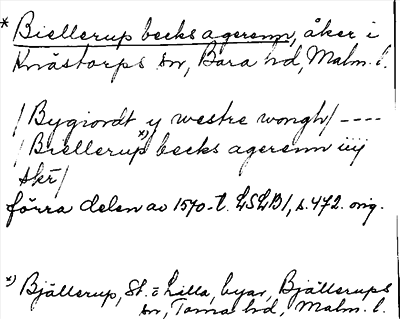 * Biellerup becks agerenn, åker i
Knästorps sn, Bara hd, Malm. l.
/ Bygiordt y westre wongh/ ----
/ Biellerup *) becks agerenn iiij
skr/
förra delen av 1570-t. LSLB1, s. 472. orig.
*) Bjällerup, St. = Lilla, byar, Bjällerups
sn, Torna hd, Malm. l.